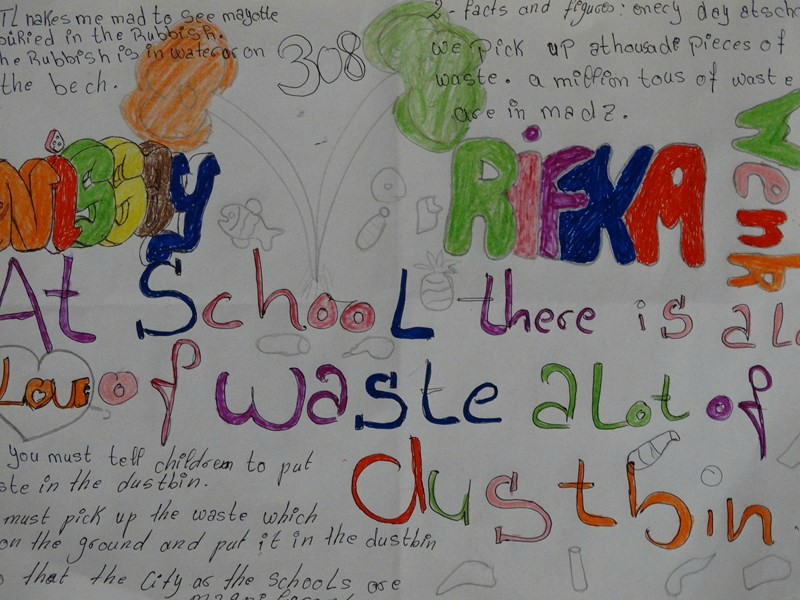 TL makes me mad to see mayotte
buried in the Rubbish.
he Rubbish is in water or on
the bech.
308
2- facts and figures: enery day atscho
we pick up athousade pieces of
waste. a million tous of waste
are in madz.
Nissly
RiFKA
Wenk
At School there is a Lo
Love
of waste a Lot of
dustbin
You must tell children to put
ste in the dustbin.
must pick up the waste which
on the ground and put it in the dustbin
that the city as the schools are